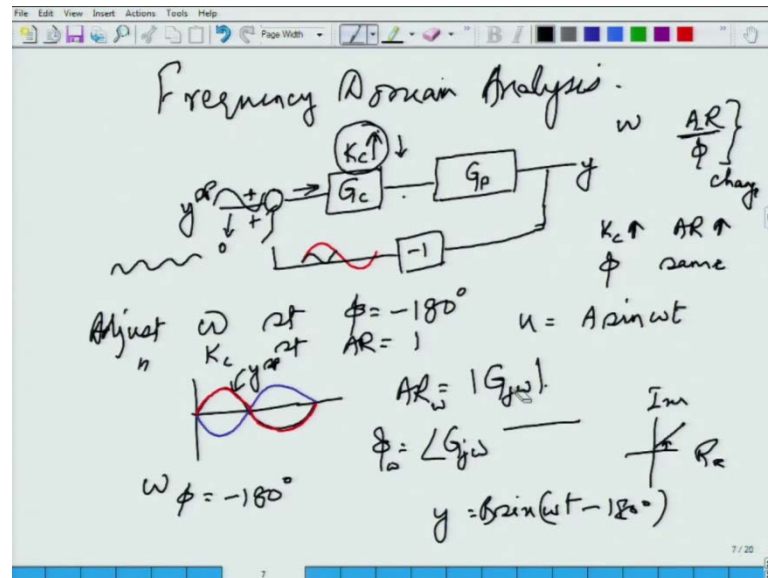 File Edit View Insert Actions Tools Help
Page Width
B I
Frequency Domain Analysis.
ω AR
ϕ
Kc↑ ↓
Gc
Gp
y
y^sp + +
0
-1
Kc↑ AR↑
ϕ same
Adjust ω st ϕ = -180°
" Kc st AR = 1
u = A sin ωt
y^sp
AR_ω = |G_jω|
ϕ_ω = ∠G_jω
Im
Re
ω ϕ = -180°
y = B sin(ωt - 180°)
7 / 20
7